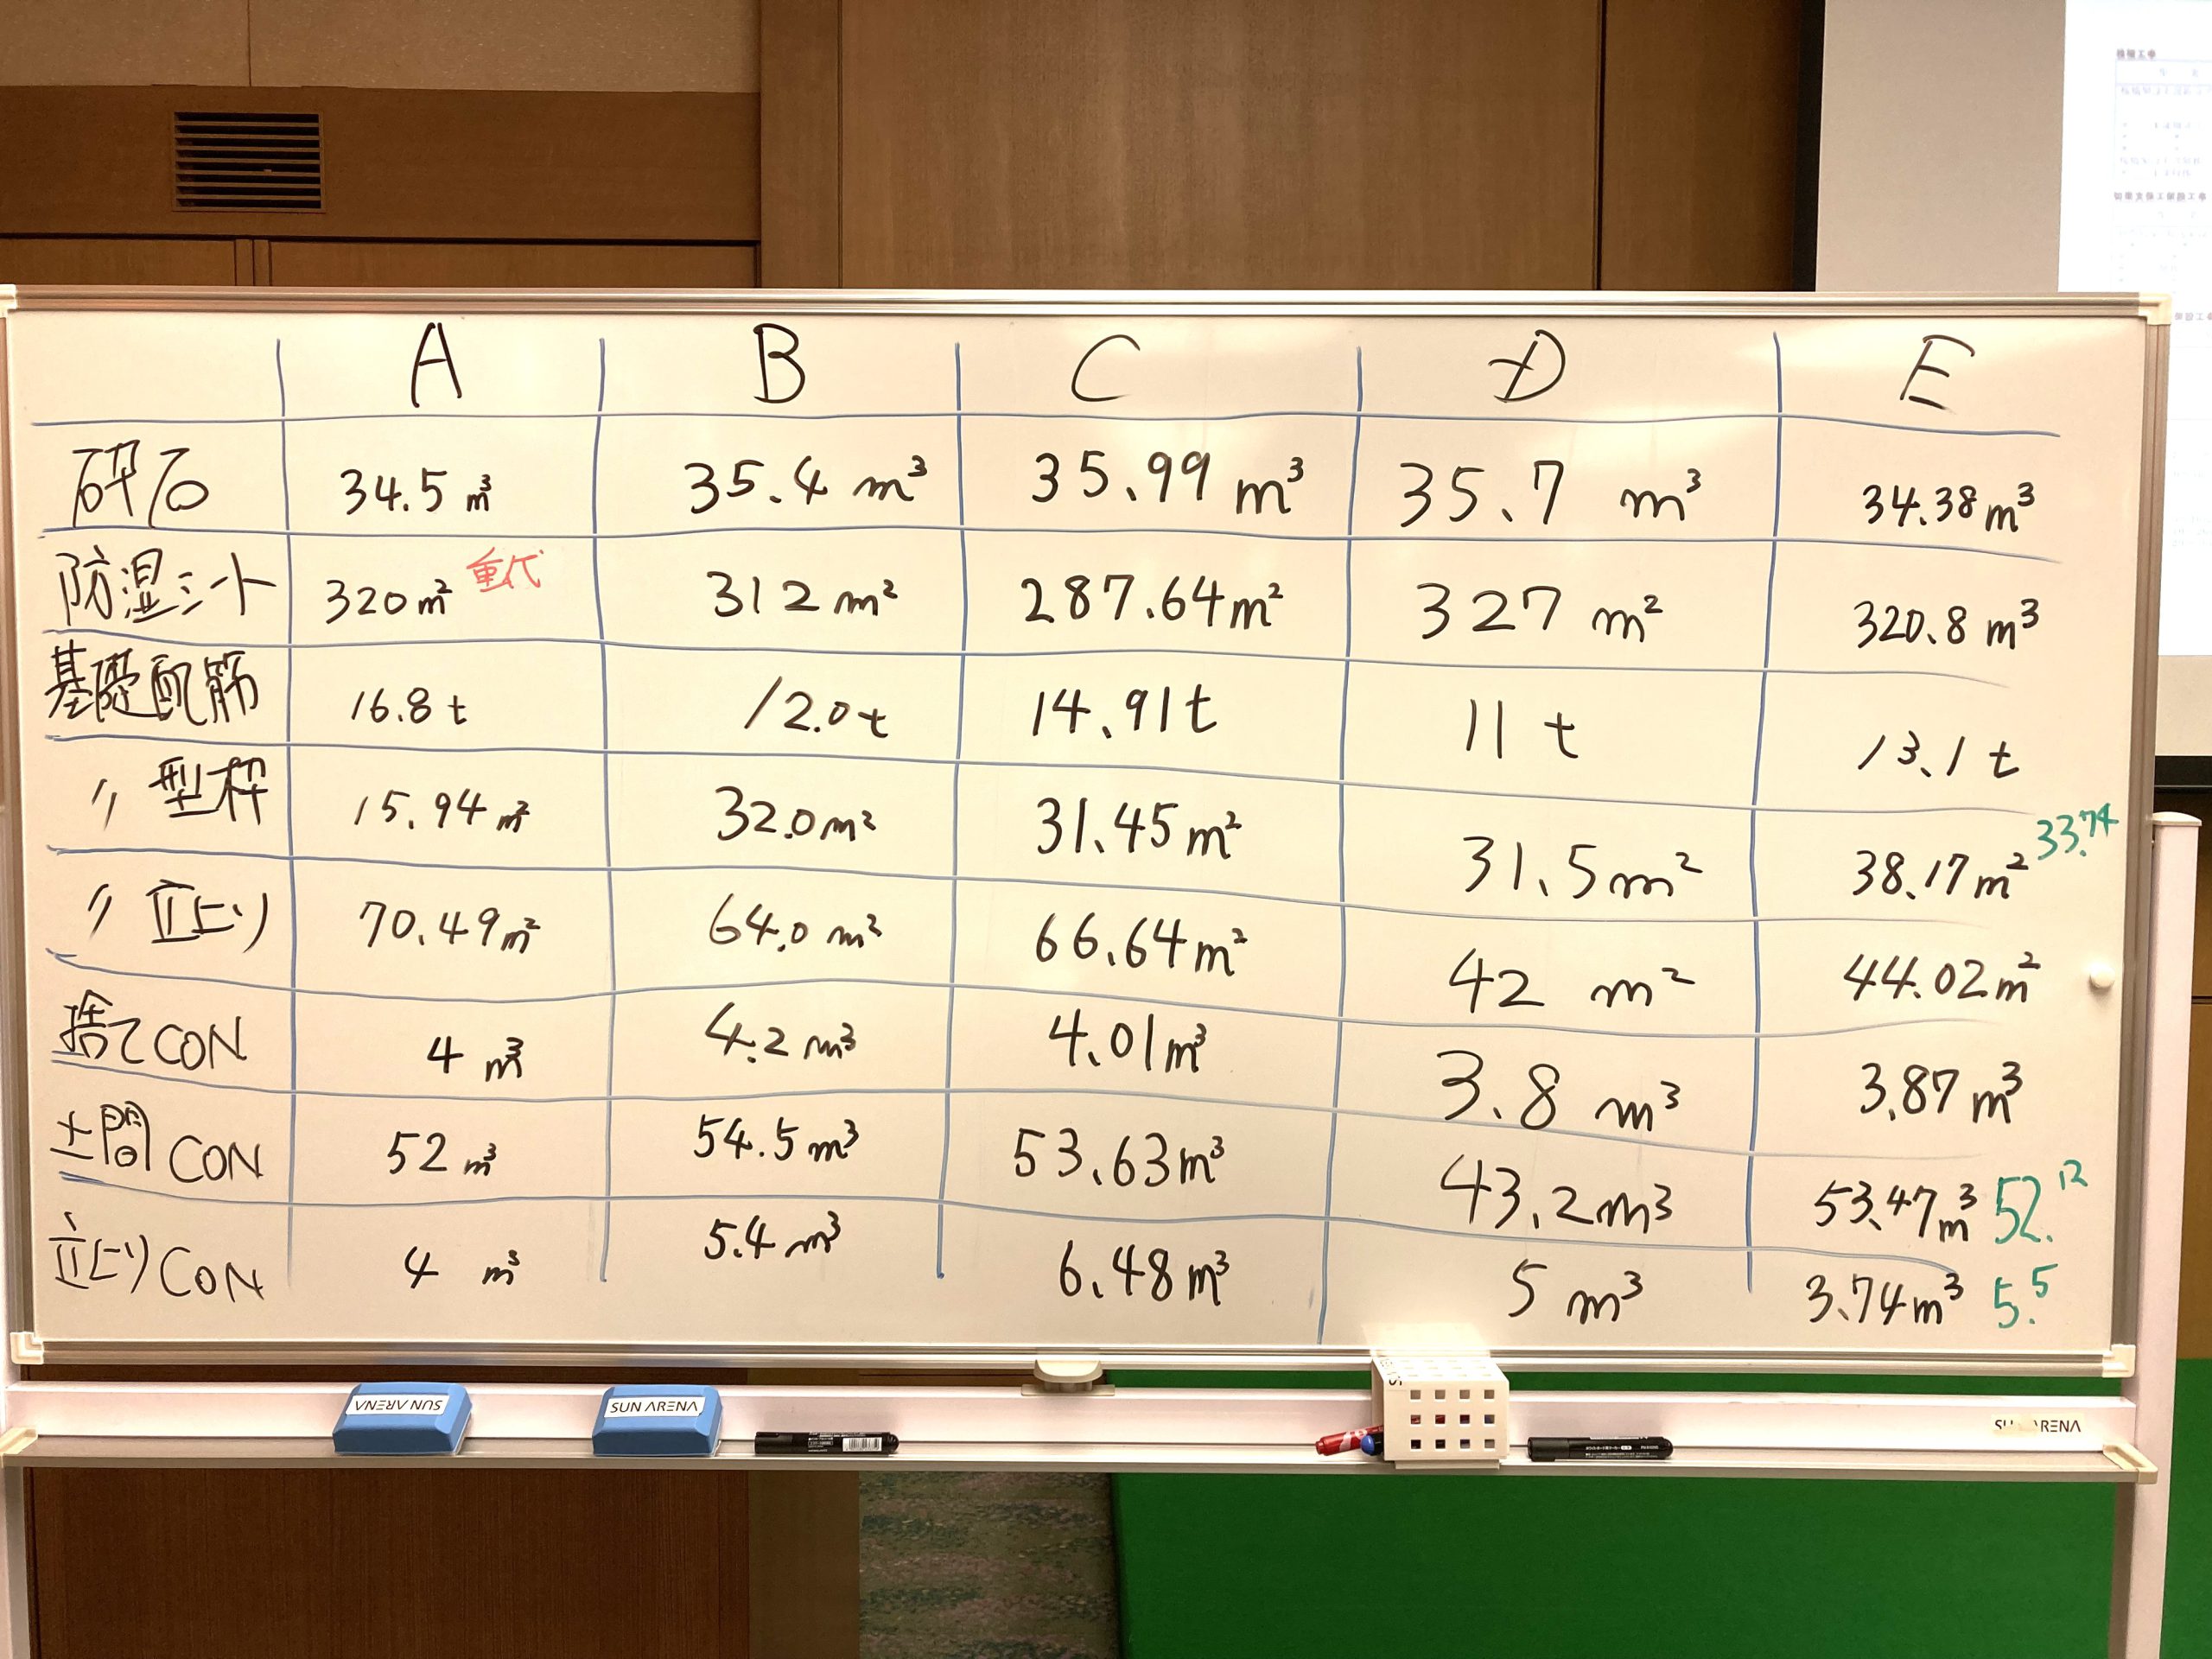 A B C D E
砕石 34.5 m³ 35.4 m³ 35.99 m³ 35.7 m³ 34.38 m³
防湿シート 320 m² 重代 312 m² 287.64 m² 327 m² 320.8 m³
基礎配筋 16.8 t 12.0 t 14.91 t 11 t 13.1 t
〃 型枠 15.94 m² 32.0 m² 31.45 m² 31.5 m² 38.17 m² 33.74
〃 立上り 70.49 m² 64.0 m² 66.64 m² 42 m² 44.02 m²
捨てCON 4 m³ 4.2 m³ 4.01 m³ 3.8 m³ 3.87 m³
土間CON 52 m³ 54.5 m³ 53.63 m³ 43.2 m³ 53.47 m³ 52.12
立上りCON 4 m³ 5.4 m³ 6.48 m³ 5 m³ 3.74 m³ 5.5
SUN ARENA
SUN ARENA